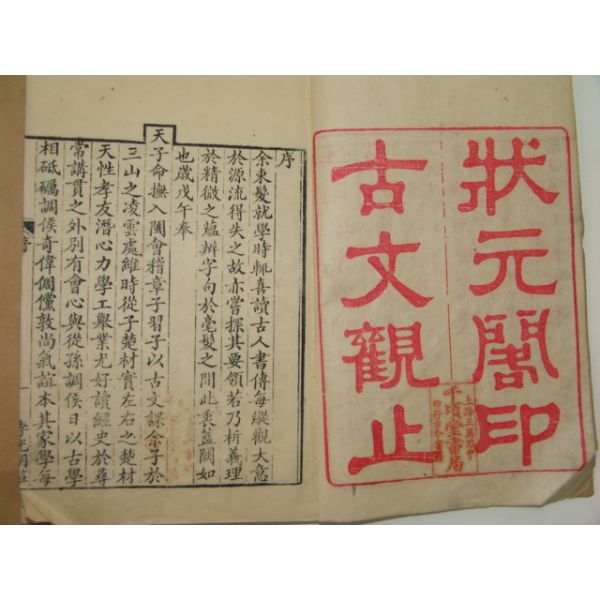 狀元閣印
古文觀止
千頃堂書局
序
余束髮就學時輒喜讀古人書傳每縱觀大意
於源流得失之故亦嘗探其要領若乃析義理
於精微之蘊辨字句於毫髮之間此衷蓋闕如
也歲戊午奉
天子命撫入閩會稽章子習子以古文課余子於
三山之凌雲處維時從子楚材實左右之楚材
天性孝友潛心力學工舉業尤好讀經史於尋
常講貫之外別有會心與從孫調侯日以古學
相砥礪調侯奇偉倜儻敦尚氣誼本其家學每
序
一
李光明莊